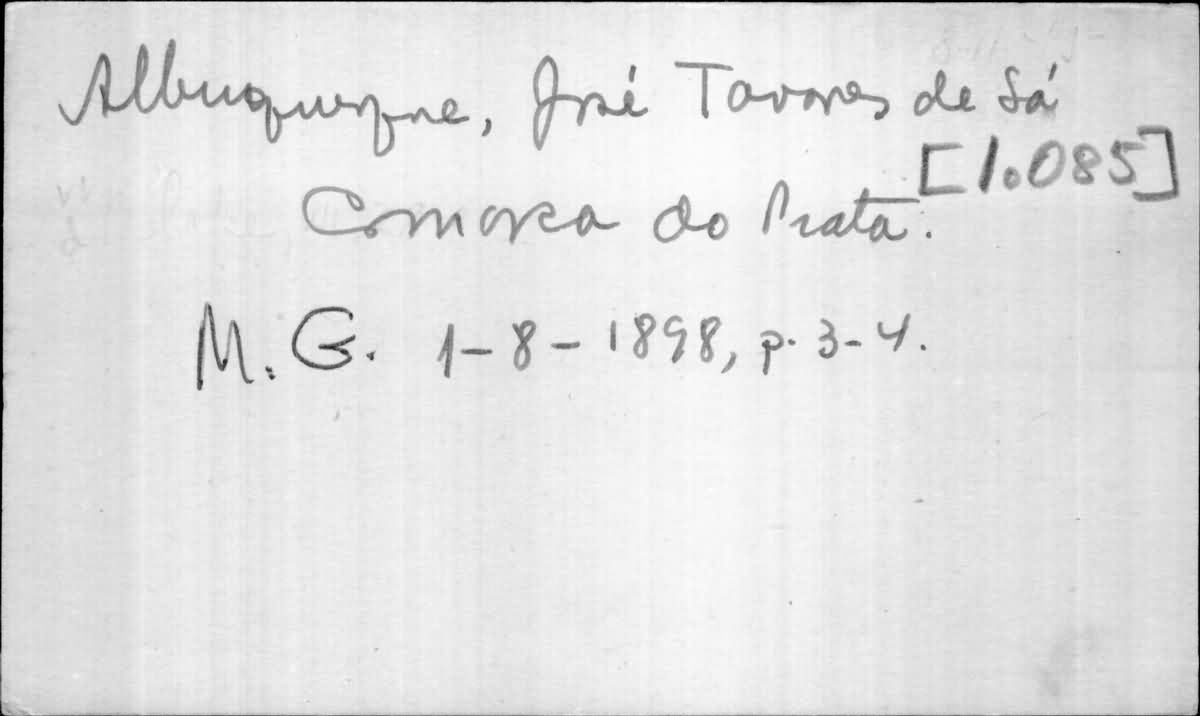 Albuquerque, José Tavares de Sá
[1.085]
Comarca do Prata.
M. G. 1-8-1898, p. 3-4.